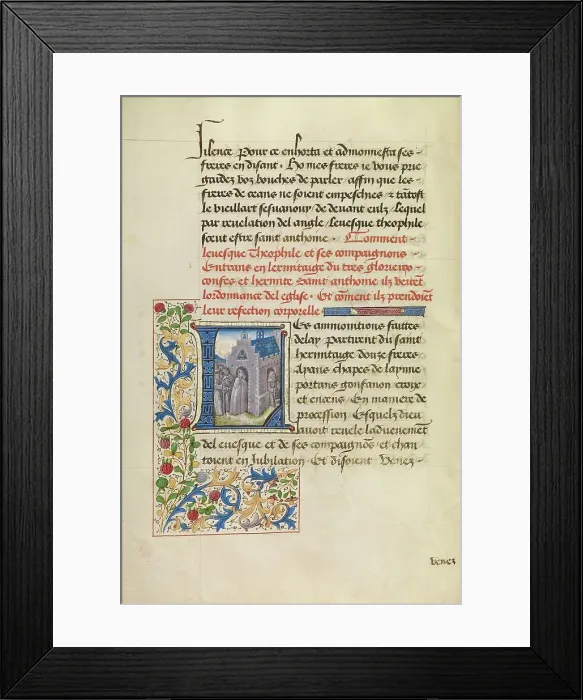 silence Pour ce enhorta et admonnesta ses
freres en disant. Ho mes freres ie vous prie
gardez voz bouches de parler, affin que les
freres de ceans ne soient empeschies, & tātost
le vieillart sesvanouy de devant eulx lequel
par revelation del angle, levesque theophile
sceut estre saint anthoine. Comment
levesque Theophile et ses compaignons
Entrans en lermitaige du tres glorieux
confes et hermite Saint anthoine ilz virent
lordonnance del eglise. Et cōment ilz prendoiēt
leur refection corporelle
Les ammonitions faittes
delay partirent du saint
hermitage douze freres
Ayans chapes de layne
portans gonfanon croix
et encens, En maniere de
procession Esquelz dieu
avoit revele ladvenemēt
del evesque et de ses compaignōs et chan
toient en Jubilation. Et disoient Venez
Venez